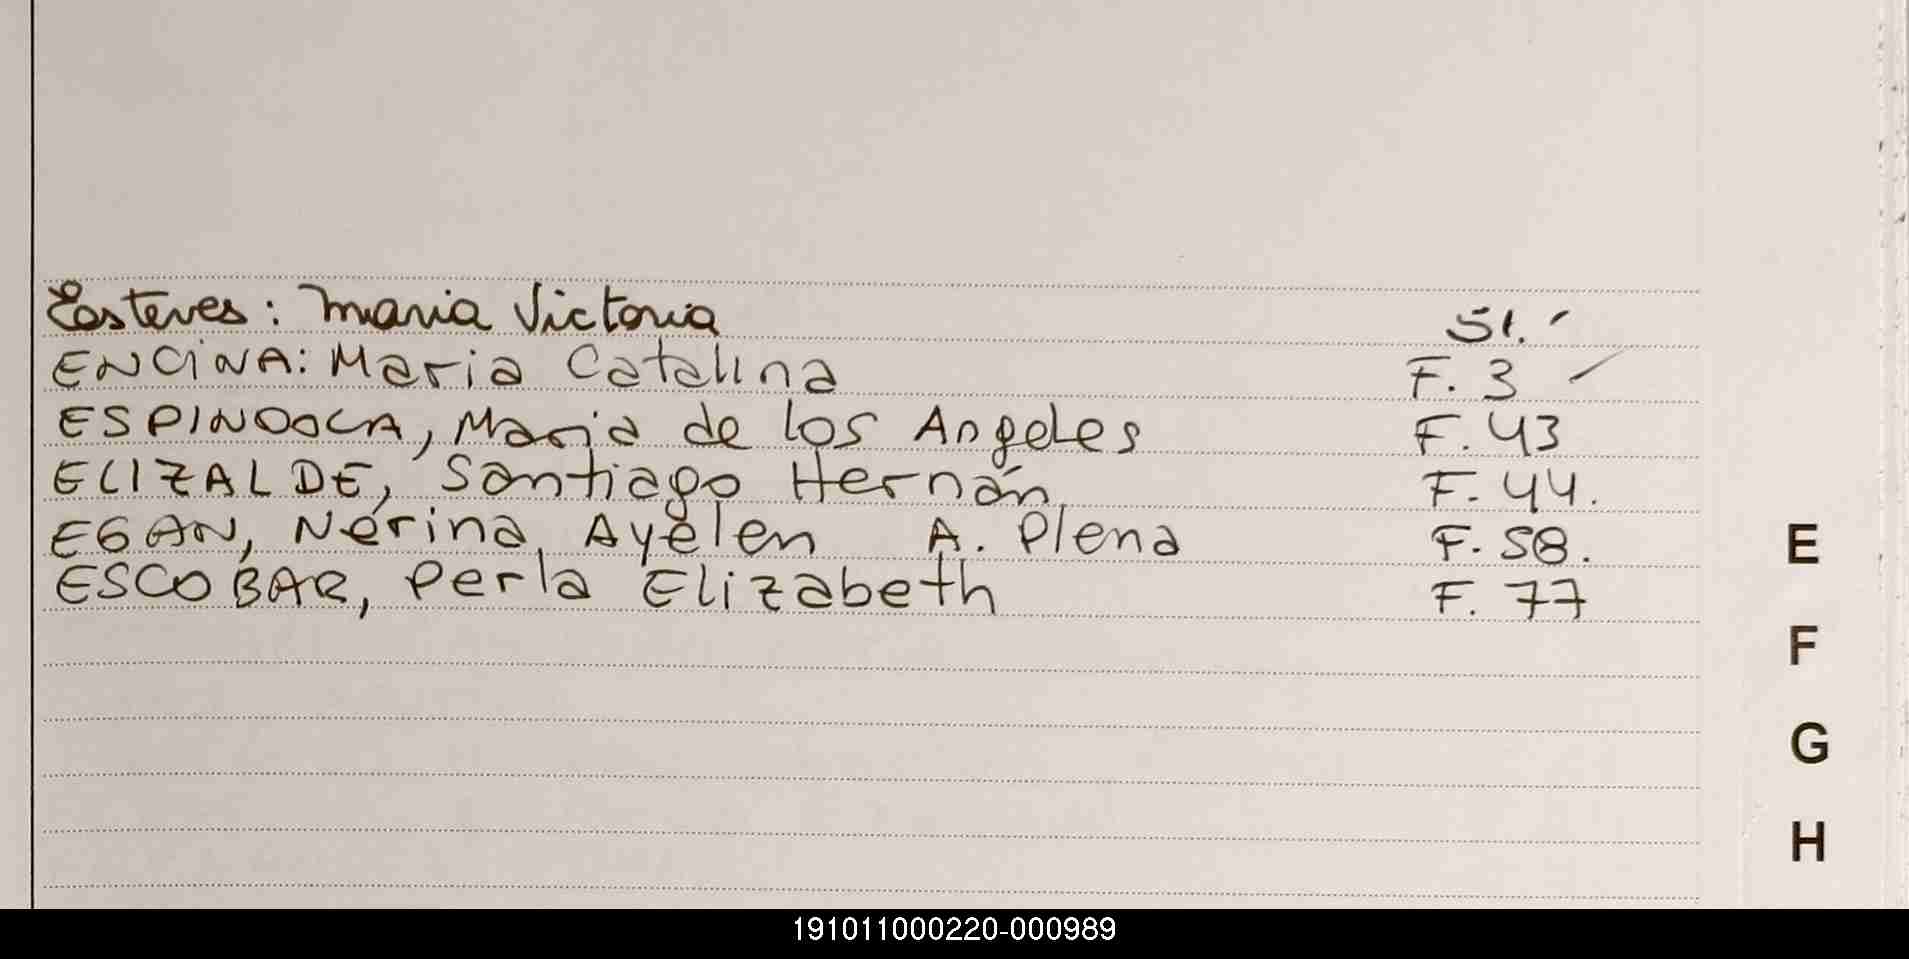 Esteves: Maria Victoria 51.
ENCINA: Maria Catalina F. 3
ESPINDOLA, Maria de los Angeles F. 43
ELIZALDE, Santiago Hernán F. 44.
EGAN, Nerina, Ayelen A. Plena F. 58.
ESCOBAR, Perla Elizabeth F. 77
E
F
G
H
191011000220-000989